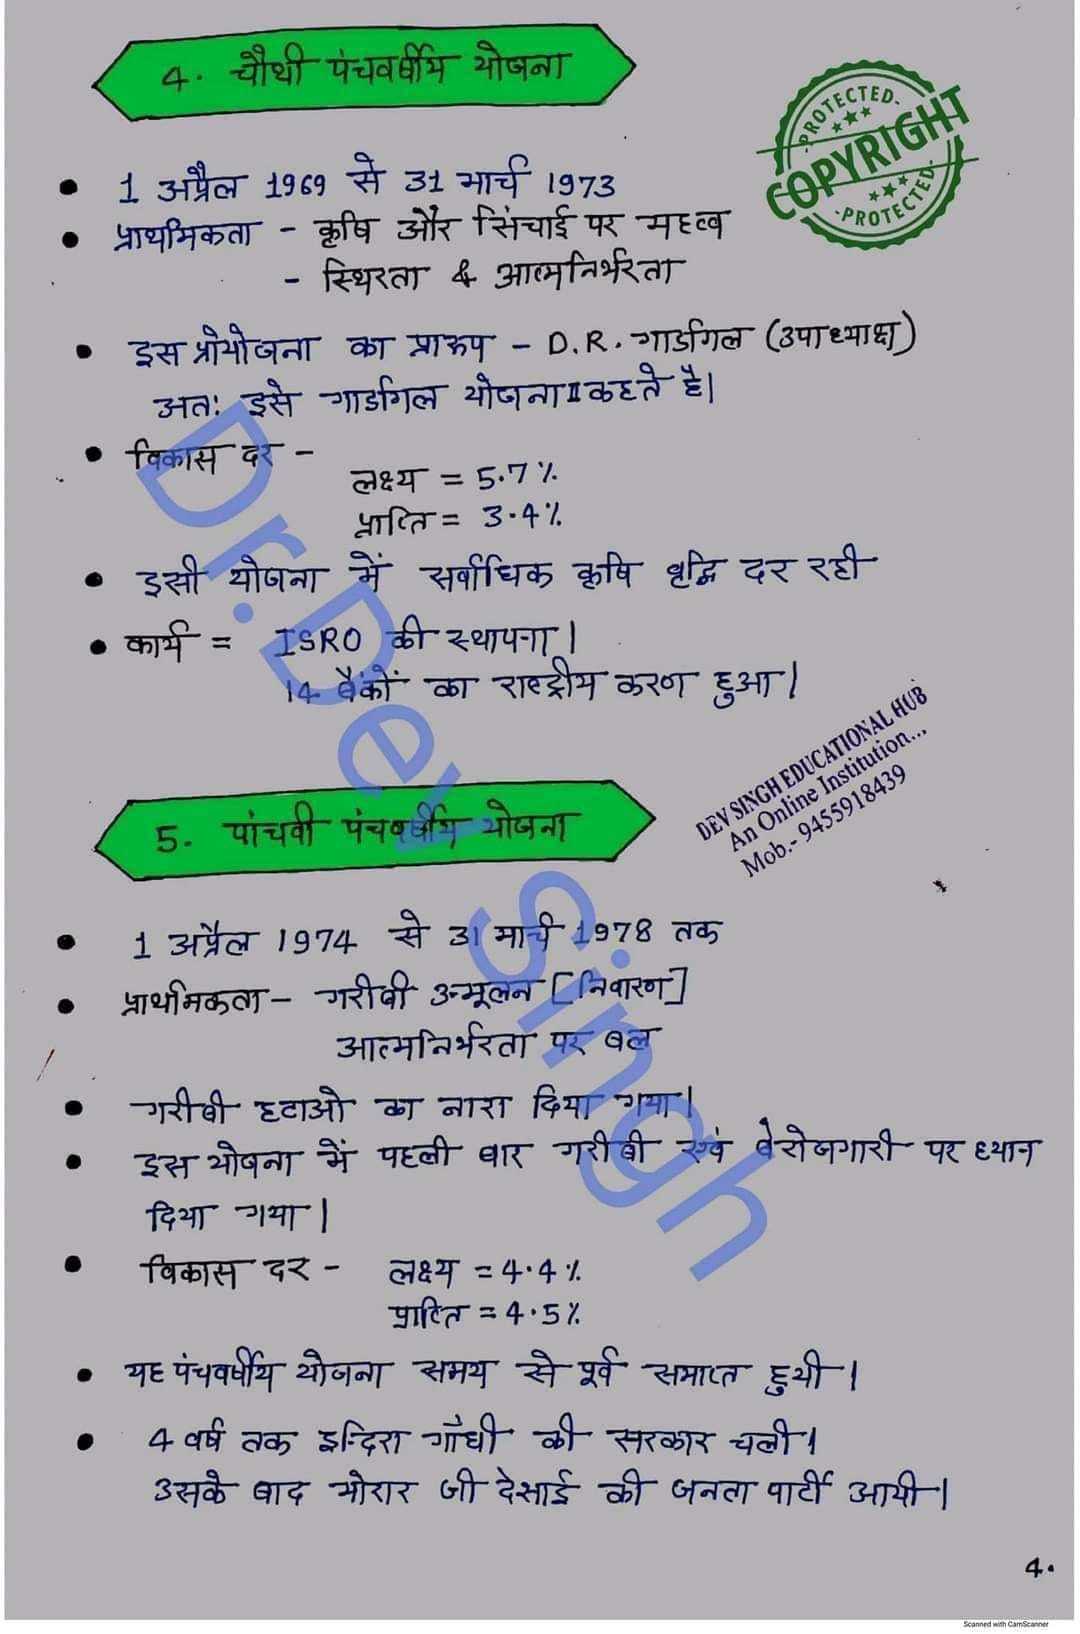 4. चौथी पंचवर्षीय योजना
PROTECTED
COPYRIGHT
PROTECTED
• 1 अप्रैल 1969 से 31 मार्च 1973
• प्राथमिकता - कृषि और सिंचाई पर महत्व
- स्थिरता & आत्मनिर्भरता
• इस प्रोयोजना का प्रारूप - D.R. गार्डगिल (उपाध्याक्ष)
अत: इसे गार्डगिल योजना II कहते है।
• विकास दर -
लक्ष्य = 5.7%
प्राप्ति = 3.4%
• इसी योजना में सर्वाधिक कृषि वृद्धि दर रही
• कार्य = ISRO की स्थापना।
14 बैंकों का राष्ट्रीय करण हुआ।
DEV SINGH EDUCATIONAL HUB
An Online Institution...
Mob.- 9455918439
5. पांचवी पंचवर्षीय योजना
• 1 अप्रैल 1974 से 31 मार्च 1978 तक
• प्राथमिकता - गरीबी उन्मूलन [निवारण]
आत्मनिर्भरता पर बल
• गरीबी हटाओ का नारा दिया गया।
• इस योजना में पहली बार गरीबी एवं बेरोजगारी पर ध्यान
दिया गया।
• विकास दर - लक्ष्य = 4.4%
प्राप्ति = 4.5%
• यह पंचवर्षीय योजना समय से पूर्व समाप्त हुयी।
• 4 वर्ष तक इन्दिरा गाँधी की सरकार चली।
उसके बाद मोरार जी देसाई की जनता पार्टी आयी।
Dr.Dev Singh
4.
Scanned with CamScanner